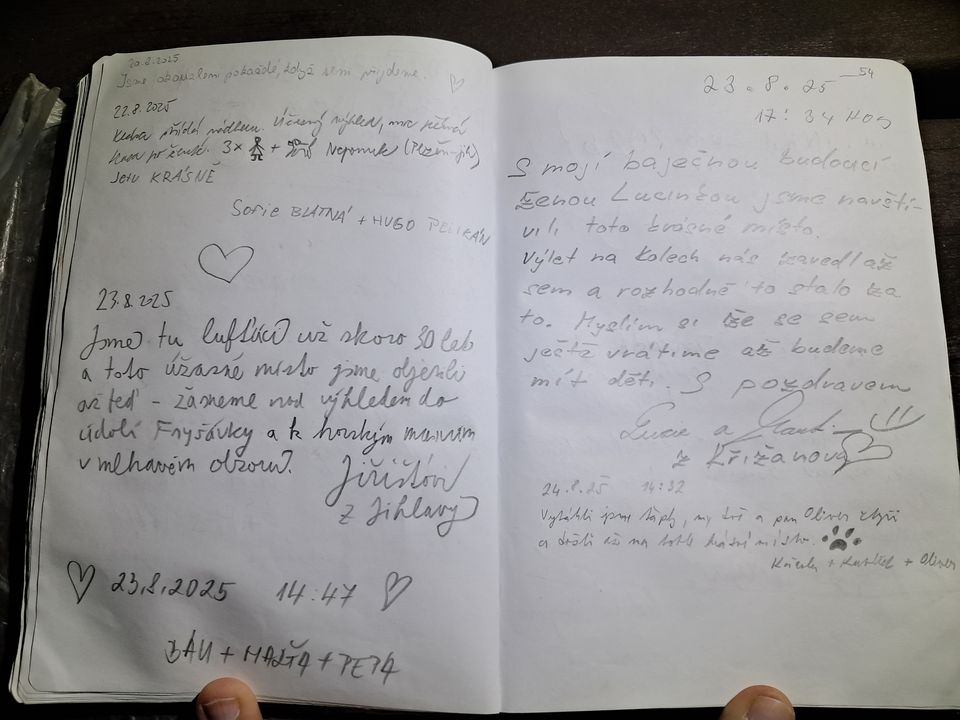 20.8.2025
Jsme okouzleni pokaždé, když sem přijdeme.
22.8.2025
přidá Úžasný výhled,
3x + Nepomuk (Plzeň-jih)
Jsou KRÁSNĚ
Sofie BLATNÁ + HUGO PELIKÁN
23.8.2025
Jsme tu lufťáci už skoro 30 let
a toto úžasné místo jsme objevili
až teď - žasneme nad výhledem do
údolí Fryšávky a k horským masivům
v mlhavém obzoru.
Jirištovi
z Jihlavy
23.8.2025 14:47
DÁU + MAJŤA + PEPA
54
23.8.25
17:34 HOD
S mojí báječnou budoucí
ženou Lucinkou jsme navští-
vili toto krásné místo.
Výlet na kolech nás zavedl až
sem a rozhodně to stálo za
to. Myslím si že se sem
ještě vrátíme až budeme
mít děti. S pozdravem
Lucie a
z Křižanova
24.8.25 14:32
Vytáhli jsme tlapky, my dvě a pan Oliver čtyři
a došli až na tohle krásné místo.
+ + Oliver